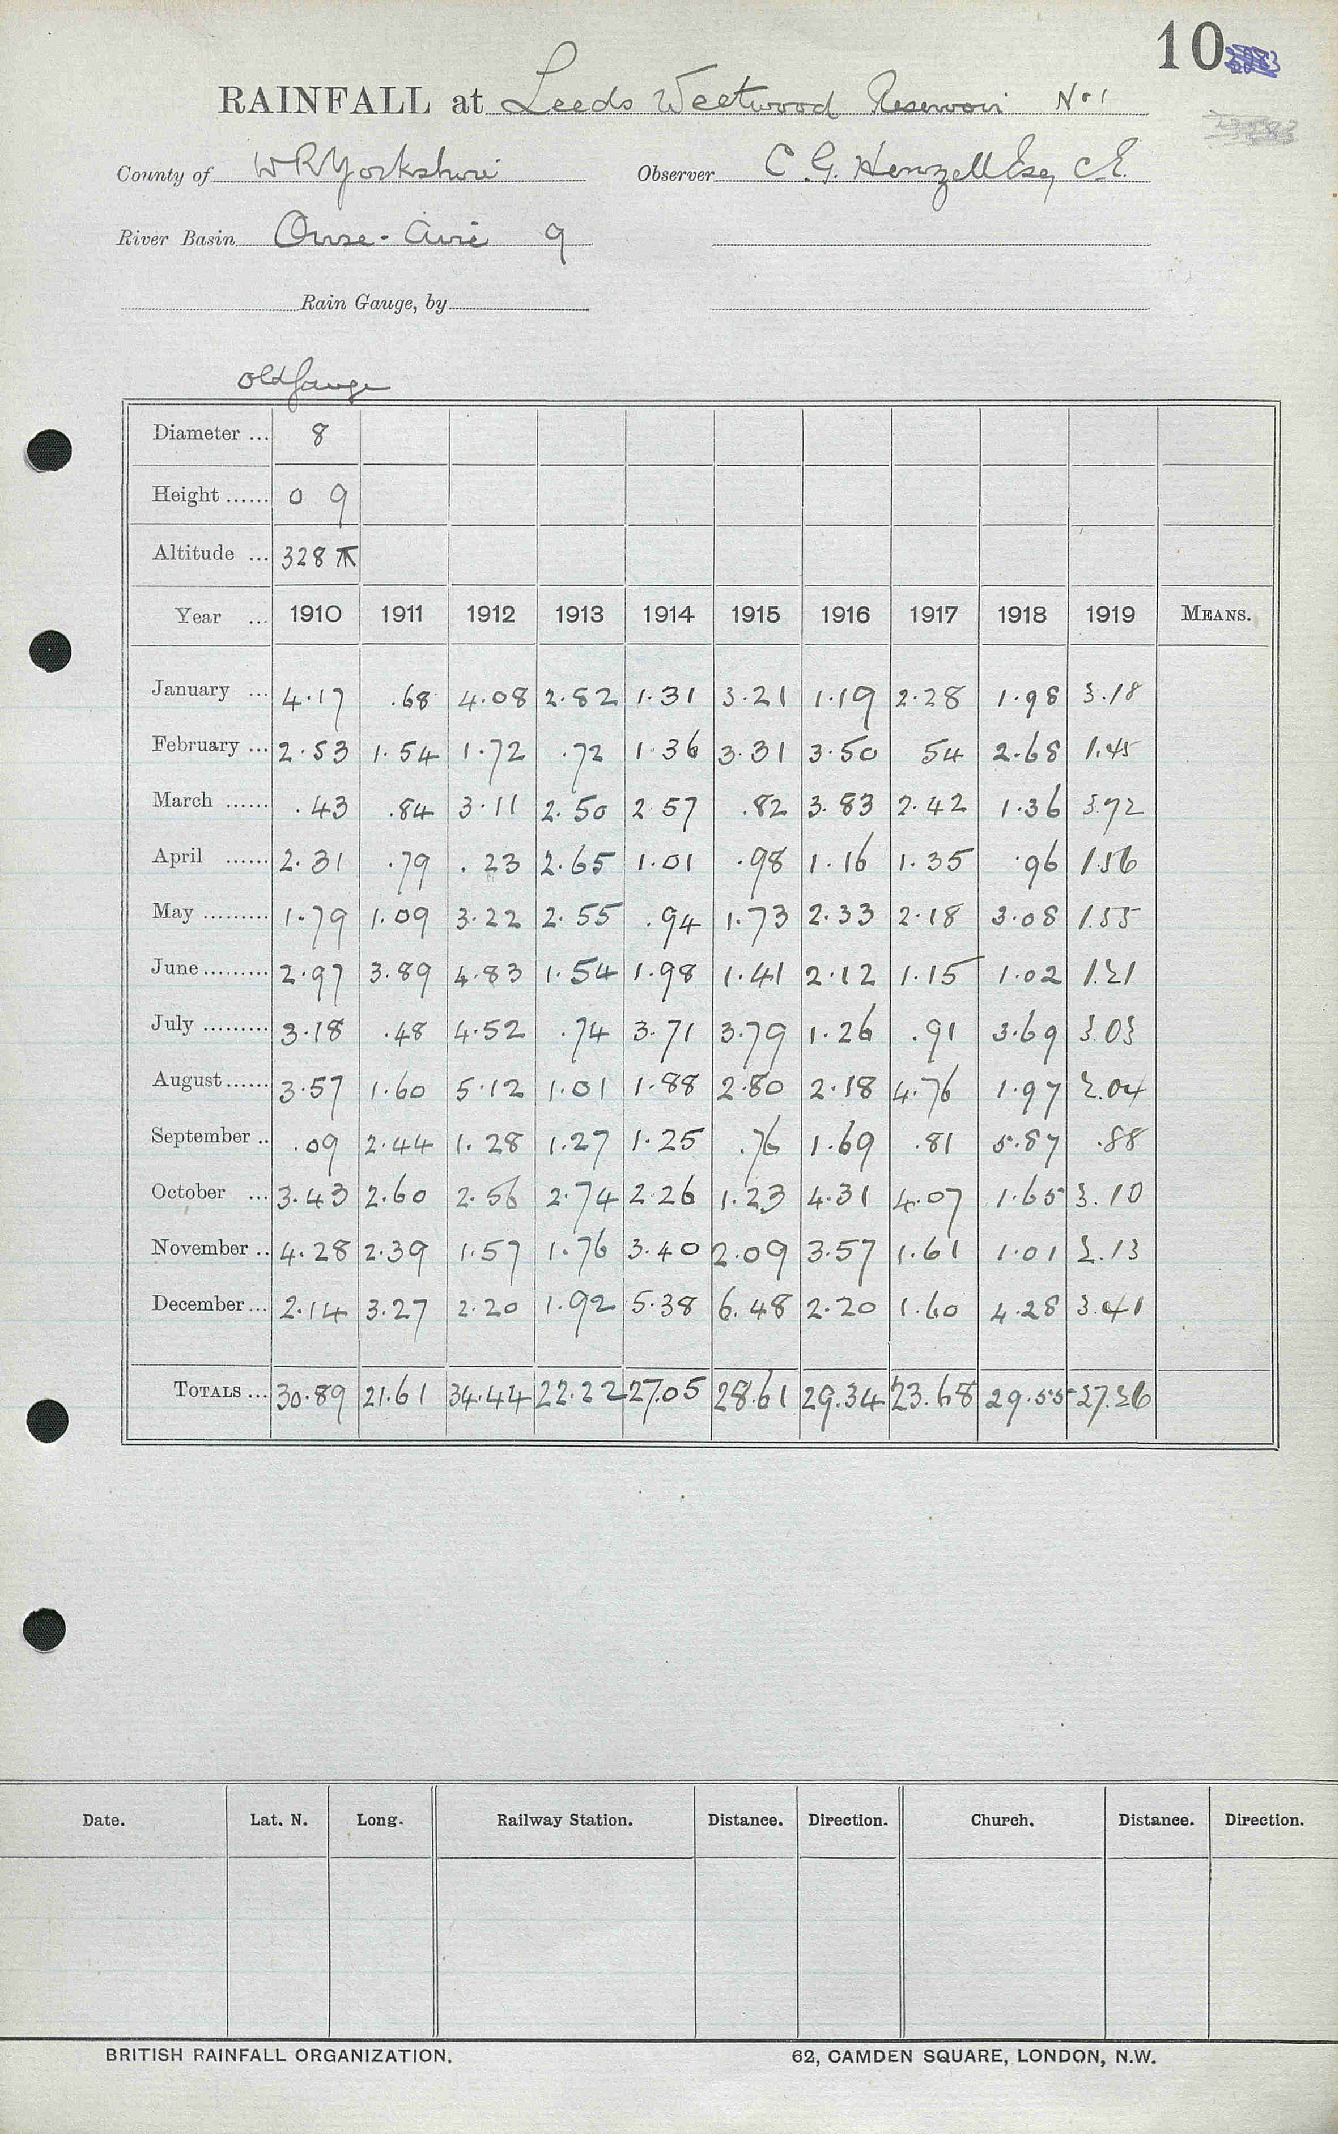 10
RAINFALL at Leeds Weetwood Reservoir No 1
County of W R Yorkshire Observer C. G. Henzell Esq C.E.
River Basin Ouse - Aire 9
Rain Gauge, by
Old Gauge
Diameter ... 8
Height ...... 0 9
Altitude ... 328
Year ... 1910 1911 1912 1913 1914 1915 1916 1917 1918 1919 MEANS.
January ... 4.17 .68 4.08 2.82 1.31 3.21 1.19 2.28 1.98 3.18
February ... 2.53 1.54 1.72 .72 1.36 3.31 3.50 54 2.68 1.45
March ...... .43 .84 3.11 2.50 2 57 .82 3.83 2.42 1.36 3.72
April ...... 2.31 .79 .23 2.65 1.01 .98 1.16 1.35 .96 1.56
May ......... 1.79 1.09 3.22 2.55 .94 1.73 2.33 2.18 3.08 1.55
June ......... 2.97 3.89 4.83 1.54 1.98 1.41 2.12 1.15 1.02 1.21
July ......... 3.18 .48 4.52 .74 3.71 3.79 1.26 .91 3.69 3.03
August ...... 3.57 1.60 5.12 1.01 1.88 2.80 2.18 4.76 1.97 2.04
September .. .09 2.44 1.28 1.27 1.25 .76 1.69 .81 5.87 .88
October ... 3.43 2.60 2.56 2.74 2.26 1.23 4.31 4.07 1.65 3.10
November .. 4.28 2.39 1.57 1.76 3.40 2.09 3.57 1.61 1.01 2.13
December ... 2.14 3.27 2.20 1.92 5.38 6.48 2.20 1.60 4.28 3.41
TOTALS ... 30.89 21.61 34.44 22.22 27.05 28.61 29.34 23.68 29.55 27.26
Date. Lat. N. Long. Railway Station. Distance. Direction. Church. Distance. Direction.
BRITISH RAINFALL ORGANIZATION. 62, CAMDEN SQUARE, LONDON, N.W.